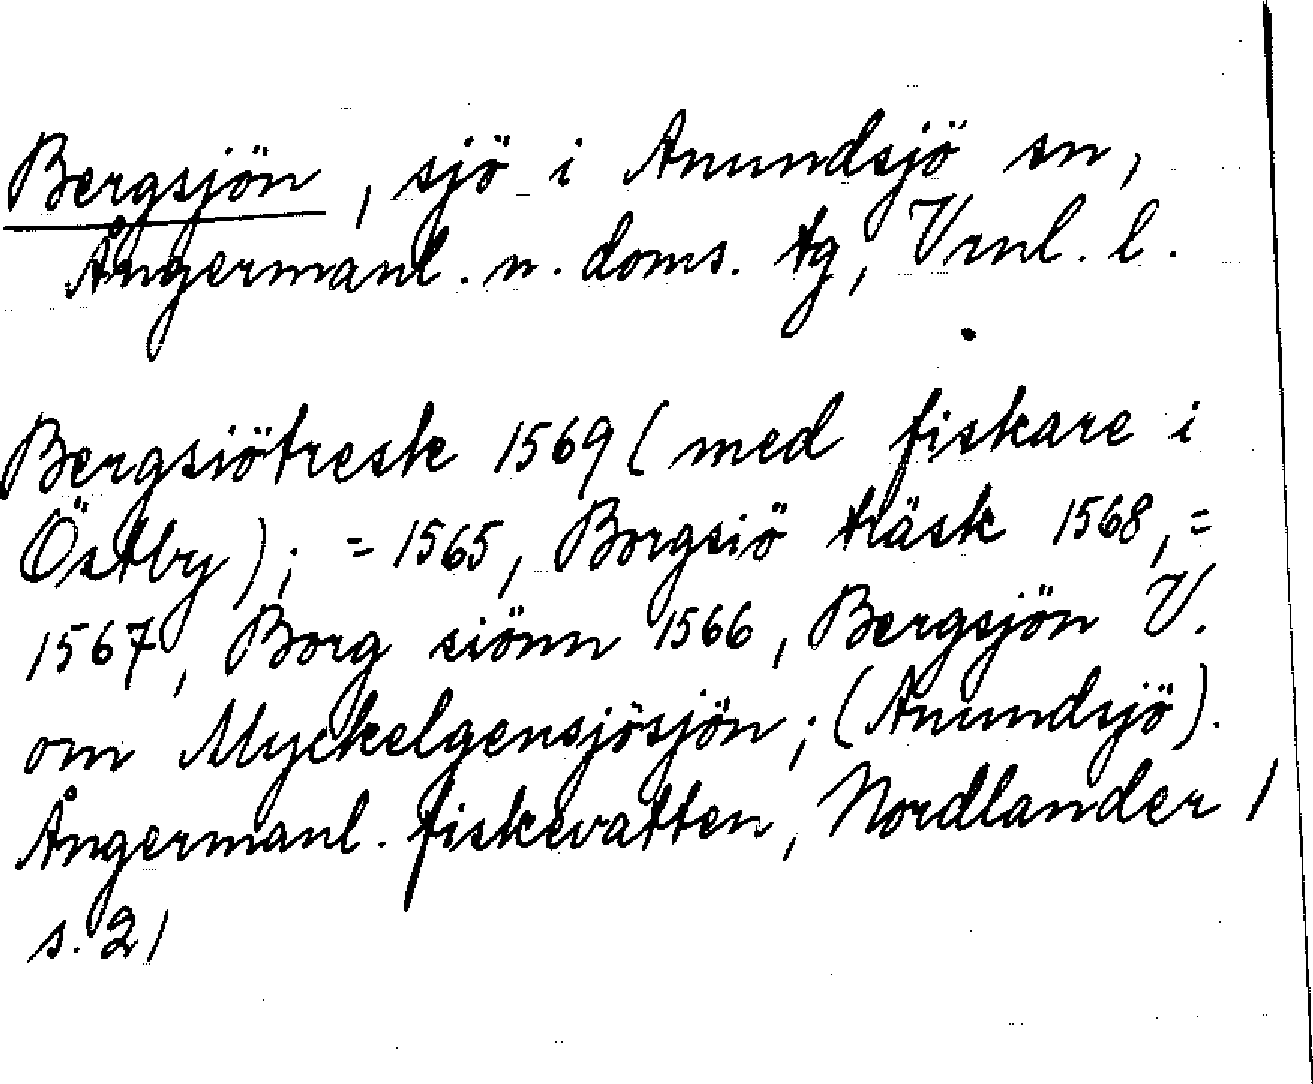 Bergsjön, sjö i Anundsjö sn,
Ångermanl. n. doms. tg, Vrnl. l.
Bergsiötresk 1569 (med fiskare i
Östby); = 1565, Borgsiö träsk 1568, =
1567, Borg siönn 1566, Bergsjön V.
om Myckelgensjösjön; (Anundsjö).
Ångermanl. fiskevatten, Nordlander 1
s. 21